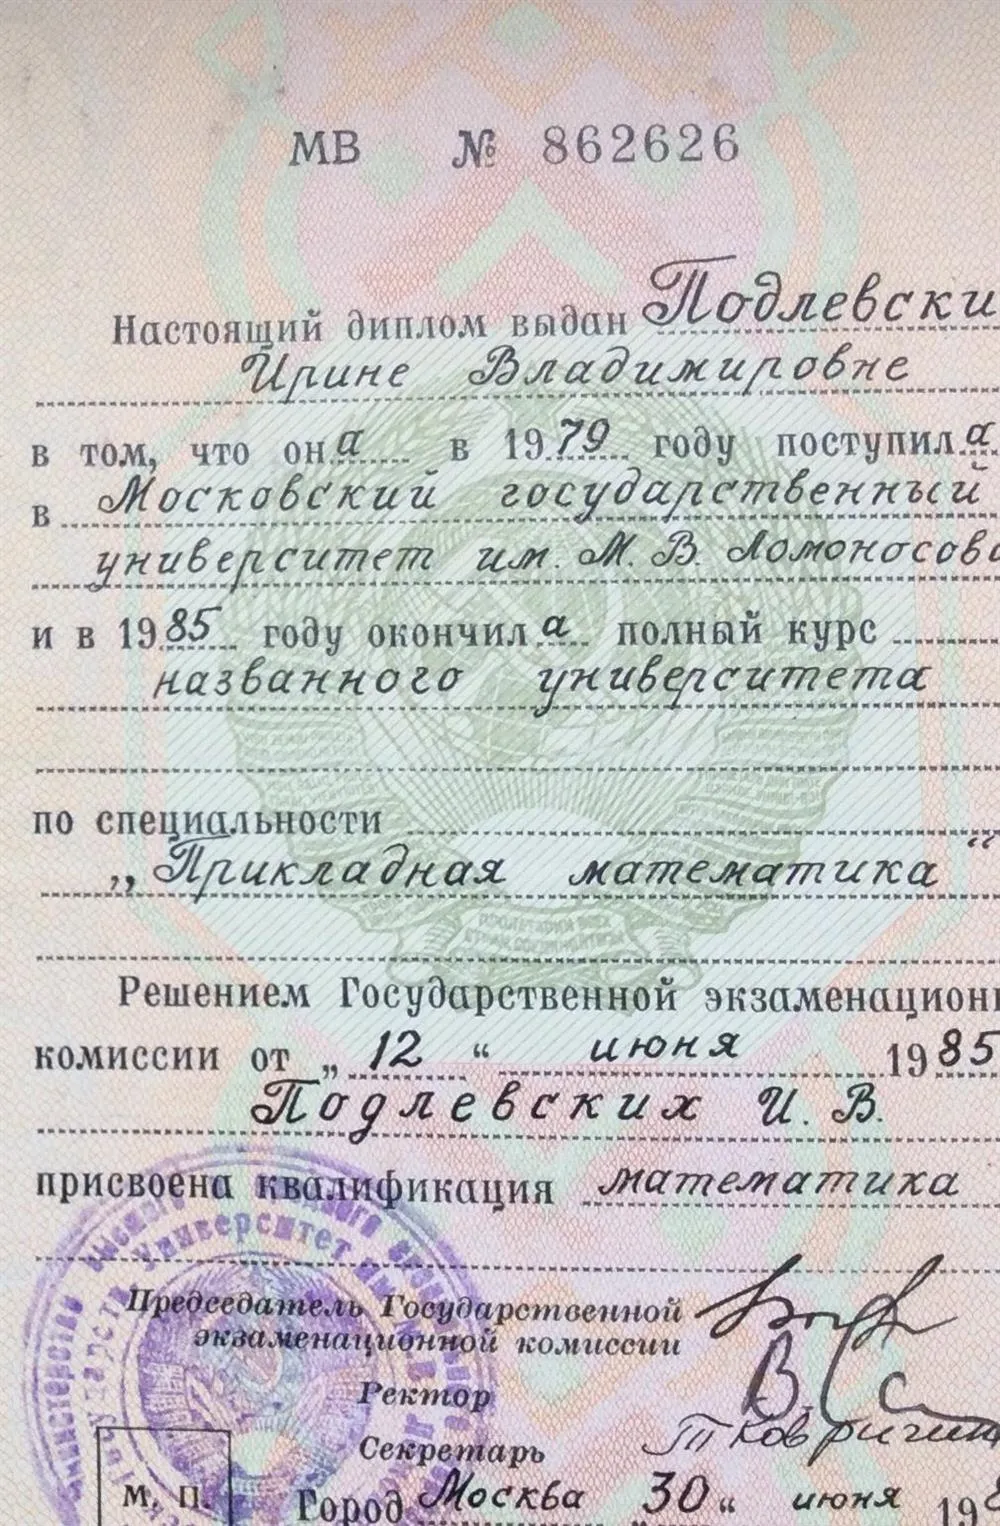 МВ № 862626
Настоящий диплом выдан Подлевски
Ирине Владимировне
в том, что она в 1979 году поступила
в Московский государственный
университет им. М. В. Ломоносова
и в 1985 году окончила полный курс
названного университета
по специальности
„Прикладная математика“
Решением Государственной экзаменационн
комиссии от „12“ июня 1985
Подлевских И. В.
присвоена квалификация математика
Председатель Государственной
экзаменационной комиссии
Ректор
Секретарь
М. П.
Город Москва 30 “ июня 198